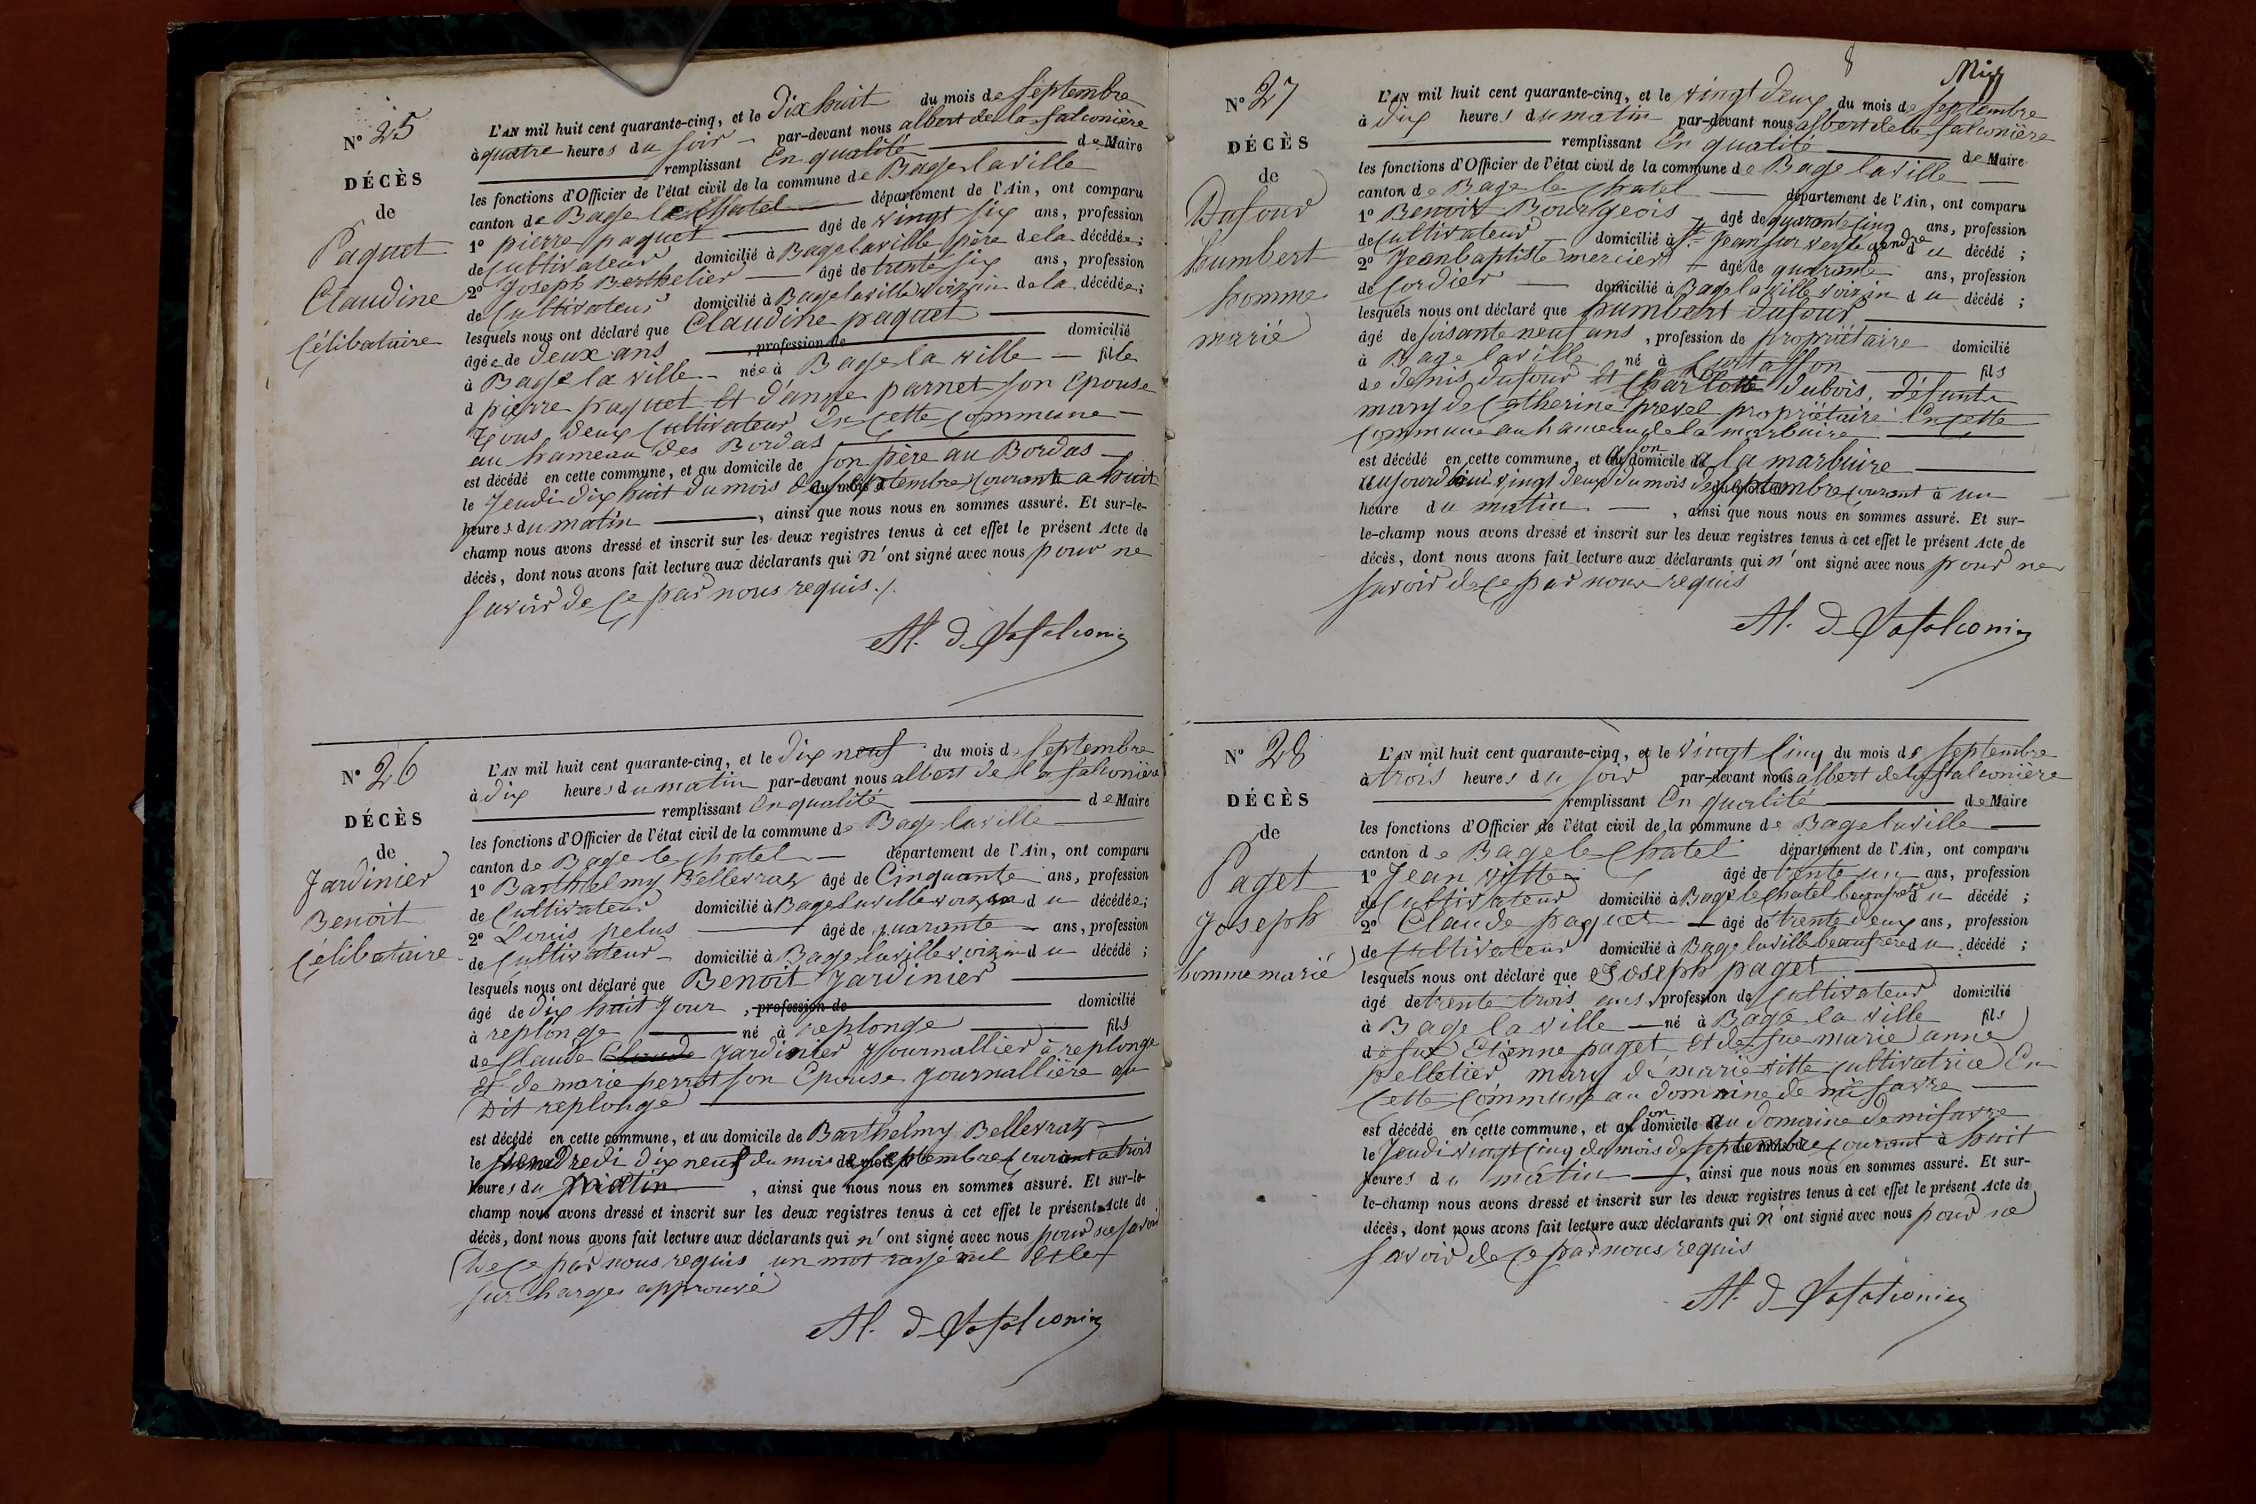 N° 25
DÉCÈS
de
Paquet
Claudine
Célibataire
L'AN mil huit cent quarante-cinq, et le dix huit du mois de septembre
à quatre heures du soir par-devant nous albert de la falconière
remplissant En qualité de Maire
les fonctions d'Officier de l'état civil de la commune de Bage la ville
canton de Bage le Chatel département de l'Ain, ont comparu
1° pierre paquet âgé de vingt six ans, profession
de Cultivateur domicilié à Bage la ville père de la décédée;
2° Joseph Berthelier âgé de trente six ans, profession
de Cultivateur domicilié à Bage la ville voizin de la décédée;
lesquels nous ont déclaré que Claudine paquet
âgée de deux ans , profession de domicilié
à Bage la ville née à Bage la ville fille
d pierre paquet et d'anne parnet son Epouse
Tous deux Cultivateur En Cette Commune
au hameau des Bordas
est décédé en cette commune, et au domicile de son père au Bordas
le Jeudi dix huit du mois de septembre courant a huit
heures du matin , ainsi que nous nous en sommes assuré. Et sur-le-
champ nous avons dressé et inscrit sur les deux registres tenus à cet effet le présent Acte de
décès, dont nous avons fait lecture aux déclarants qui n'ont signé avec nous pour ne
savoir de ce par nous requis./.
Al. d Lafalconière
N° 26
DÉCÈS
de
Jardinier
Benoit
Célibataire
L'AN mil huit cent quarante-cinq, et le dix neuf du mois d septembre
à dix heures du matin par-devant nous albert de la falconière
remplissant En qualité de Maire
les fonctions d'Officier de l'état civil de la commune de Bage la ville
canton de Bage le chatel département de l'Ain, ont comparu
1° Barthelmy Bellevrat âgé de Cinquante ans, profession
de Cultivateur domicilié à Bage la ville voizin du décédée;
2° Louis pelus âgé de quarante ans, profession
de Cultivateur domicilié à Bage la ville voizin du décédé;
lesquels nous ont déclaré que Benoit Jardinier
âgé de dix huit Jour , profession de domicilié
à replonge né à replonge fils
de Claude Claude Jardinier Journallier à replonge
et de marie perrot son Epouse Journallière au
Dit replonge
est décédé en cette commune, et au domicile de Barthelmy Bellevrat
le vendredi dix neuf du mois de septembre courant a trois
heures du matin , ainsi que nous nous en sommes assuré. Et sur-le-
champ nous avons dressé et inscrit sur les deux registres tenus à cet effet le présent Acte de
décès, dont nous avons fait lecture aux déclarants qui n'ont signé avec nous pour ne savoir
de ce par nous requis un mot rayé nul et les
surcharges approuvé
Al. d Lafalconière
8
N° 27
DÉCÈS
de
Dufour
humbert
homme
marié
L'AN mil huit cent quarante-cinq, et le vingt deux du mois de septembre
à dix heures du matin par-devant nous albert de la falconière
remplissant En qualité de Maire
les fonctions d'Officier de l'état civil de la commune de Bage la ville
canton de Bage le chatel département de l'Ain, ont comparu
1° Benoit Bourgeois âgé de quarante cinq ans, profession
de Cultivateur domicilié à St Jean sur veyle gendre du décédé;
2° Jean baptiste mercier âgé de quarante ans, profession
de Cordier domicilié à Bage la ville voizin du décédé;
lesquels nous ont déclaré que humbert dufour
âgé de soisante neuf ans , profession de propriétaire domicilié
à Bage la ville né à Curtaffon fils
de denis dufour et Charlotte dubois, défunts
mary de Catherine prevel propriétaire En cette
commune au hameau de la marbuire
est décédé en cette commune, et à son domicile à la marbuire
aujourd'hui vingt deux du mois de septembre courant à un
heure du matin , ainsi que nous nous en sommes assuré. Et sur-
le-champ nous avons dressé et inscrit sur les deux registres tenus à cet effet le présent Acte de
décès, dont nous avons fait lecture aux déclarants qui n'ont signé avec nous pour ne
savoir de ce par nous requis
Al. d Lafalconière
N° 28
DÉCÈS
de
Paget
Joseph
homme marié
L'AN mil huit cent quarante-cinq, et le vingt Cinq du mois de septembre
à trois heures du soir par-devant nous albert de la falconière
remplissant En qualité de Maire
les fonctions d'Officier de l'état civil de la commune de Bage la ville
canton de Bage le Chatel département de l'Ain, ont comparu
1° Jean vitte âgé de trente un ans, profession
de Cultivateur domicilié à Bage le chatel beaufrere du décédé;
2° Claude paquet âgé de trente deux ans, profession
de Cultivateur domicilié à Bage la ville beaufrere du décédé;
lesquels nous ont déclaré que Joseph paget
âgé de trente trois ans, profession de Cultivateur domicilié
à Bage la ville né à Bage la ville fils
de fut Etienne paget, et de fue marie anne
pelletier, mary de marie vitte cultivatrice En
Cette Commune au domaine de mifavre
est décédé en cette commune, et à son domicile au domaine de mifavre
le Jeudi vingt Cinq du mois de septembre courant à huit
heures du matin , ainsi que nous nous en sommes assuré. Et sur-
le-champ nous avons dressé et inscrit sur les deux registres tenus à cet effet le présent Acte de
décès, dont nous avons fait lecture aux déclarants qui n'ont signé avec nous pour ne
savoir de ce par nous requis
Al. d Lafalconière